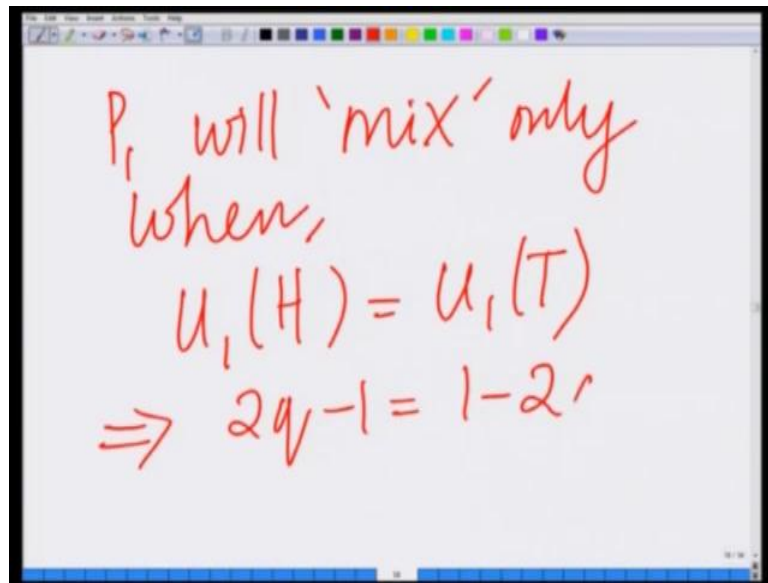 File Edit View Insert Actions Tools Help
P₁ will 'mix' only
when,
U₁(H) = U₁(T)
⇒ 2q - 1 = 1 - 2